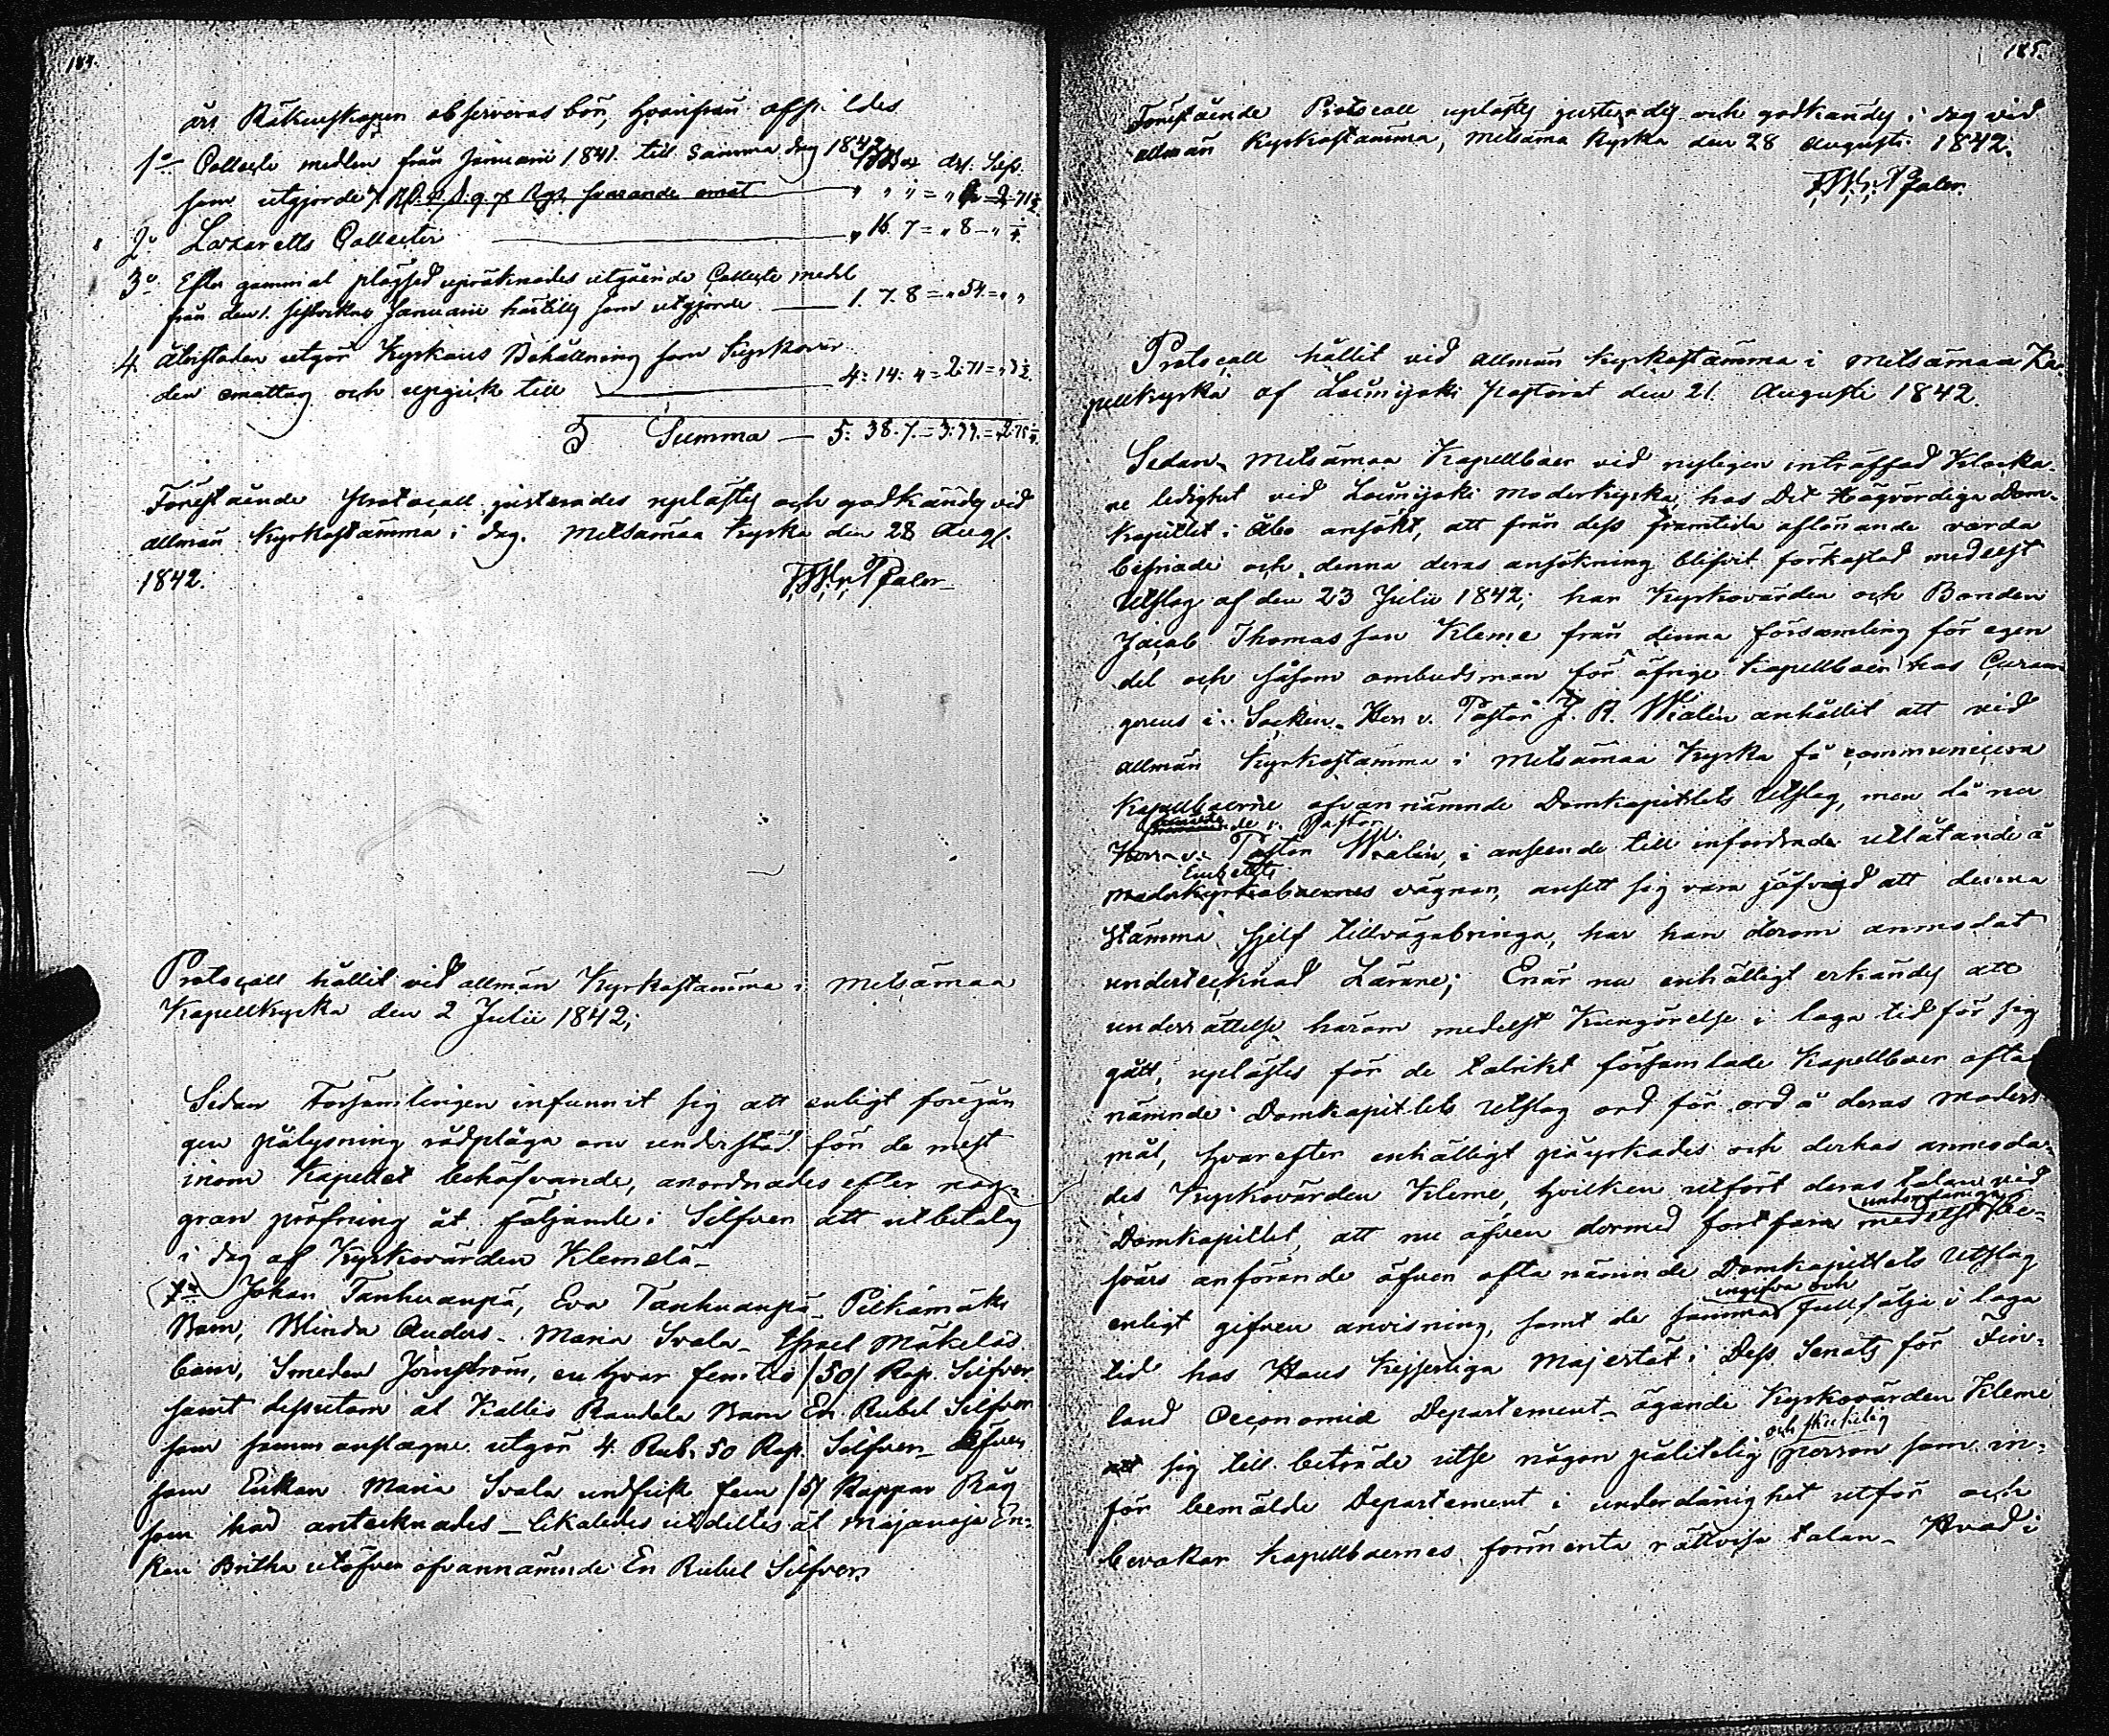 184.
års Räkenskapen observeras bör, hvarifrån
1o Collecte medlen från Januarii 1841. till samma dag 1842
som utgjorde
2o Lazaretts Collecter 16. 7 = " 8 - " ¼
3o Efter gammal plägsed uträknades utgående Collecte medel
från den 1. sistvikne Januarii härtills som utgjorde 1. 7. 8 = " 54. = " "
4. Återstoden utgör Kyrkans Behållning som Kyrkovär
den emottog och upgick till 4: 14: 4 = 2: 71 =
Summa — 5: 38. 7. = 3: 33. =
Förestående Protocoll justerades uplästes och godkändes vid
allmän Kyrkostämma i dag. Metsämaa Kyrka den 28 Aug.
1842.
Protocoll hållit vid allmän Kyrkostämma i Metsämaa
Kapellkyrka den 2 Julii 1842;
Sedan Församlingen infunnit sig att enligt föregån
gen pålysning rådpläga om understöd för de mest
inom Kapellet behöfvande, anordnades efter nog-
gran pröfning åt följande i Silfver att utbetalas
i dag af Kyrkovärden Klemelä
Johan Tanhuanpä, Eva Tanhuanpä Pitkämäki
Barn, Blinda Anders - Maria Svala - Israel Mäkeläs
barn, Smeden Jernström, en hvar femtio /50/ Kop. Silfver
samt dessutom åt Kallis Randala Barn En Rubel Silfver
som sammanslagne utgör 4. Rub. 50 Kop. Silfver - Äfven
som Enkan Maria Svala undfick fem /5/ Kappar Råg
som här antecknades - likaledes utdeltes åt Majanoja En-
kan Britha utöfver ofvannämnde En Rubel Silfver
185.
Förestående Protocoll uplästes justerades och godkändes i dag vid
allmän Kyrkostämma, Metsämaa Kyrka den 28 Augusti 1842.
Protocoll hållit vid allmän Kyrkostämma i Metsämaa Ka-
pellkyrka af Loimijoki Pastorat den 21. Augusti 1842.
Sedan Metsämaa Kapellboer vid nyligen inträffad Klocka-
re ledighet vid Loimijoki Moderkyrka, hos Det Högvördiga Dom-
Kapitlet i Åbo ansökt, att från dess framtida aflönande varda
befriade och denna deras ansökning blifvit förkastad medelst
Utslag af den 23 Julii 1842; har Kyrkovärden och Bonden
Jacob Thomasson Kleme från denna församling för egen
del och såsom ombudsman för öfrige Kapellboer hos Curam
gerens i Socken Herr v. Pastor J. R. Walin anhållit att vid
allmän Kyrkostämma i Metsämaa Kyrka få communicera
Kapellboerne ofvannämnde Domkapitlets Utslag, men då nu
de v. Pastor
Herr v. Pastor Walin, i anseende till infordrade utlåtande å
Embetets
Moderkyrkoboernes vägnar, ansett sig vara jäfvig att denna
stämma sjelf tillvägabringa, har han derom anmodat
undertecknad Lärare; Enär nu enhälligt erkändes att
underrättelse härom medelst Kungörelse i laga tid för sig
gått, uplästes för de talrikt församlade Kapellboer ofta
nämnde Domkapitlets Utslag ord för ord å deras moders
mål, hvarefter enhälligt påyrkades och derhos anmoda-
des Kyrkovärden Kleme, hvilken utfört deras talan vid
underdåniga
Domkapitlet, att nu äfven dermed fortfara medelst be-
svärs anförande öfver oftanämnde Domkapitlets Utslag
ingifva och
enligt gifven anvisning, samt de samma fullfölja i laga
tid hos Hans Kejserliga Majestät i Dess Senats för Fin-
land Oeconomie Departement - ägande Kyrkovärden Kleme
och skickelig
att sig till beträde utse någon pålitelig person som in-
för bemälde Departement i underdånighet utför och
bevakar Kapellboernes förmenta rättvisa talan - Hvad i